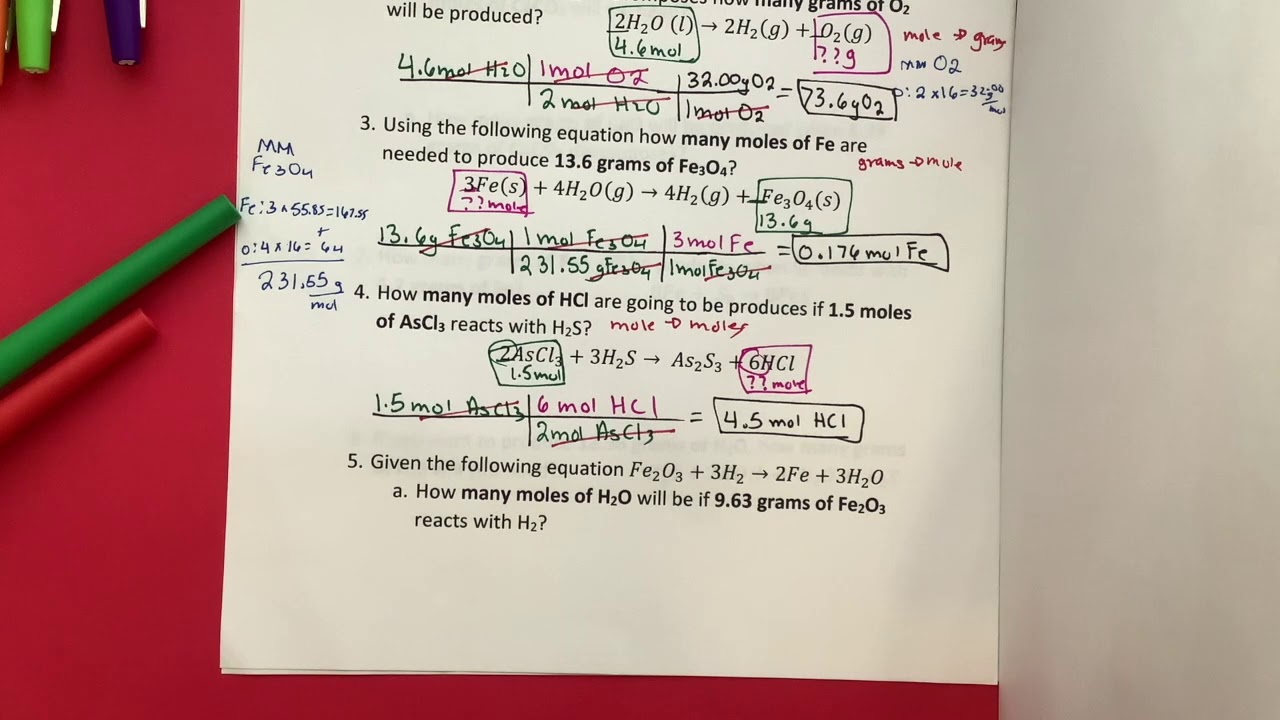 how many grams of O₂
will be produced?
2H₂O (l) → 2H₂(g) + O₂(g)
4.6mol
??g
mole → grams
MM O2
O: 2 x 16 = 32.00 g/mol
4.6mol H2O | 1mol O2 | 32.00g O2 = 73.6g O2
2 mol H2O | 1mol O2
3. Using the following equation how many moles of Fe are
needed to produce 13.6 grams of Fe₃O₄?
grams → mole
MM
Fe3O4
Fe: 3 x 55.85 = 167.55
+
O: 4 x 16 = 64
231.55 g/mol
3Fe(s) + 4H₂O(g) → 4H₂(g) + Fe₃O₄(s)
??mole
13.6g
13.6g Fe3O4 | 1mol Fe3O4 | 3mol Fe = 0.176 mol Fe
231.55 g Fe3O4 | 1mol Fe3O4
4. How many moles of HCl are going to be produces if 1.5 moles
of AsCl₃ reacts with H₂S? mole → moles
2AsCl₃ + 3H₂S → As₂S₃ + 6HCl
1.5mol
??mole
1.5 mol AsCl3 | 6 mol HCl = 4.5 mol HCl
2mol AsCl3
5. Given the following equation Fe₂O₃ + 3H₂ → 2Fe + 3H₂O
a. How many moles of H₂O will be if 9.63 grams of Fe₂O₃
reacts with H₂?